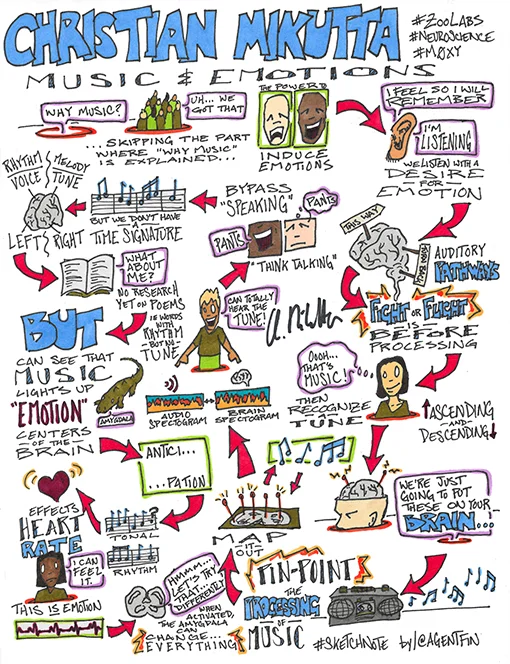 CHRISTIAN MIKUTTA
#ZOOLABS
#NEUROSCIENCE
#MOXY
MUSIC & EMOTIONS
WHY MUSIC?
UH... WE
GOT THAT
...SKIPPING THE PART
WHERE "WHY MUSIC"
IS EXPLAINED...
THE POWER 2
INDUCE
EMOTIONS
I FEEL SO I WILL
REMEMBER
I'M
LISTENING
WE LISTEN WITH A
DESIRE
-FOR-
EMOTION
THIS WAY
AUDITORY
PATHWAYS
FIGHT OR FLIGHT
IS
BEFORE
PROCESSING
OOOH...
THAT'S
MUSIC!
THEN
RECOGNIZE
TUNE
ASCENDING
-AND-
DESCENDING
WE'RE JUST
GOING TO PUT
THESE ON YOUR
BRAIN...
PIN-POINT
THE
PROCESSING
OF
MUSIC
MAP
OUT
AUDIO
SPECTOGRAM
BRAIN
SPECTOGRAM
CAN TOTALLY
HEAR THE
TUNE!
PANTS
PANTS
"THINK TALKING"
BYPASS
"SPEAKING"
BUT WE DON'T HAVE
A
TIME SIGNATURE
RHYTHM
VOICE
MELODY
TUNE
LEFT
RIGHT
WHAT
ABOUT
ME?
NO RESEARCH
YET ON POEMS
IE WORDS
WITH
RHYTHM
-BUT NO-
TUNE
BUT
CAN SEE THAT
MUSIC
LIGHTS UP
"EMOTION"
CENTERS
-OF-THE-
BRAIN
AMYGDALA
ANTICI...
...PATION
TONAL
?
RHYTHM
HMMM...
LET'S TRY
THAT
DIFFERENTLY
WHEN
ACTIVATED,
THE AMYGDALA
CAN
CHANGE...
EVERYTHING
EFFECTS
HEART
RATE
I CAN
FEEL
IT.
THIS IS EMOTION
#SKETCHNOTE by/@AGENTFIN